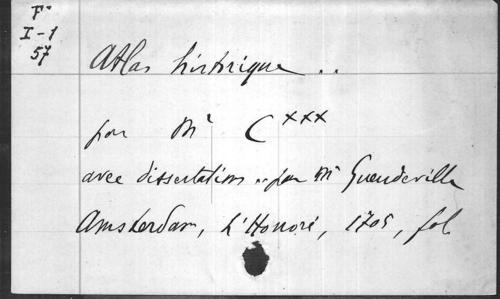 F°
I-1
57
Atlas historique ..
par Mr C xxx
avec dissertation .. par Mr Gueudeville
Amsterdam, L'Honoré, 1705, fol